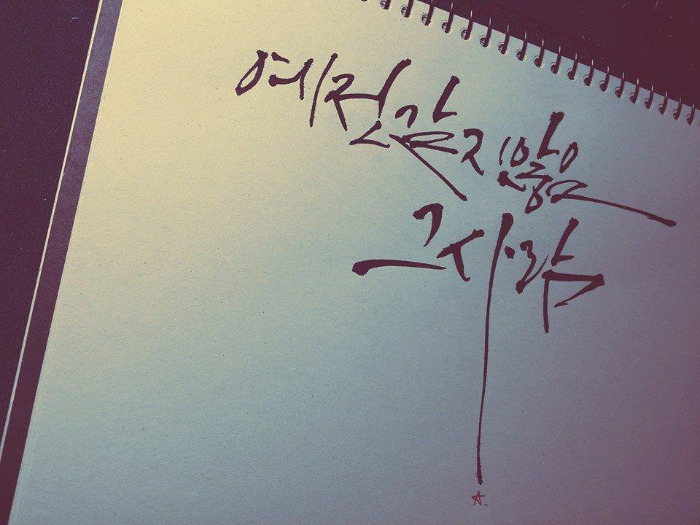 예전같지 않은
그 사람